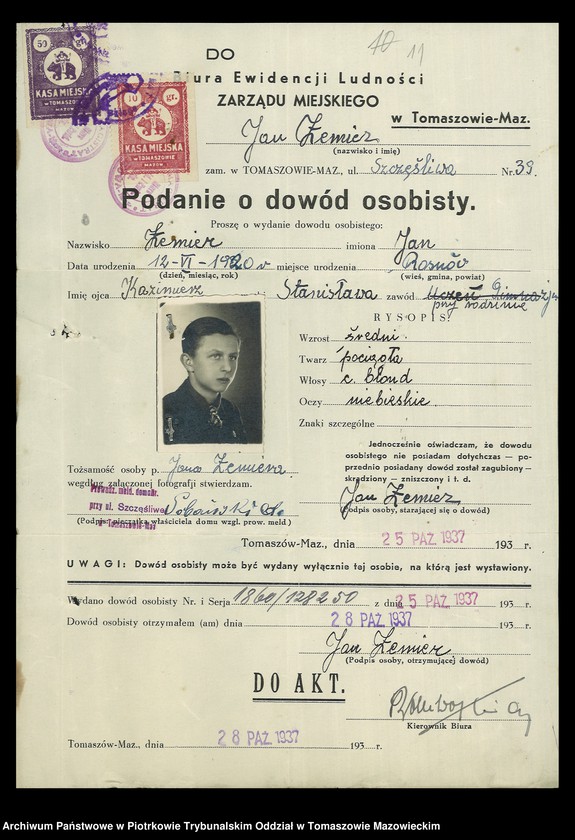 10 11
DO
Biura Ewidencji Ludności
ZARZĄDU MIEJSKIEGO
w Tomaszowie-Maz.
50 gr.
KASA MIEJSKA
W TOMASZOWIE
MAZOW.
10 gr.
KASA MIEJSKA
W TOMASZOWIE
MAZOW.
Jan Żemier
(nazwisko i imię)
zam. w TOMASZOWIE-MAZ., ul. Szczęśliwa Nr. 39.
Podanie o dowód osobisty.
Proszę o wydanie dowodu osobistego:
Nazwisko Żemier imiona Jan
Data urodzenia 12-VI-1920 r miejsce urodzenia Rosnów
(dzień, miesiąc, rok) (wieś, gmina, powiat)
Imię ojca Kazimierz Stanisława zawód Uczeń Gimnazjum
przy rodzinie
RYSOPIS:
Wzrost średni.
Twarz pociągła
Włosy c. blond
Oczy niebieskie.
Znaki szczególne
Jednocześnie oświadczam, że dowodu
osobistego nie posiadam dotychczas — po-
przednio posiadany dowód został zagubiony -
skradziony - zniszczony i t. d.
Jan Żemier
(Podpis osoby, starającej się o dowód)
Tożsamość osoby p. Jana Żemiera
według załączonej fotografji stwierdzam.
Prowadz. meld. domowe
przy ul. Szczęśliwej
w Tomaszowie-Maz
(Podpis i pieczątka właściciela domu wzgl. prow. meld)
Tomaszów-Maz., dnia 25 PAŹ. 1937 193 r.
UWAGI: Dowód osobisty może być wydany wyłącznie tej osobie, na którą jest wystawiony.
Wydano dowód osobisty Nr. i Serja 1860/128250 z dnia 25 PAŹ. 1937 193 r.
Dowód osobisty otrzymałem (am) dnia 28 PAŹ. 1937 193 r.
Jan Żemier
(Podpis osoby, otrzymującej dowód)
DO AKT.
Kierownik Biura
Tomaszów-Maz., dnia 28 PAŹ. 1937 193 r.
Archiwum Państwowe w Piotrkowie Trybunalskim Oddział w Tomaszowie Mazowieckim